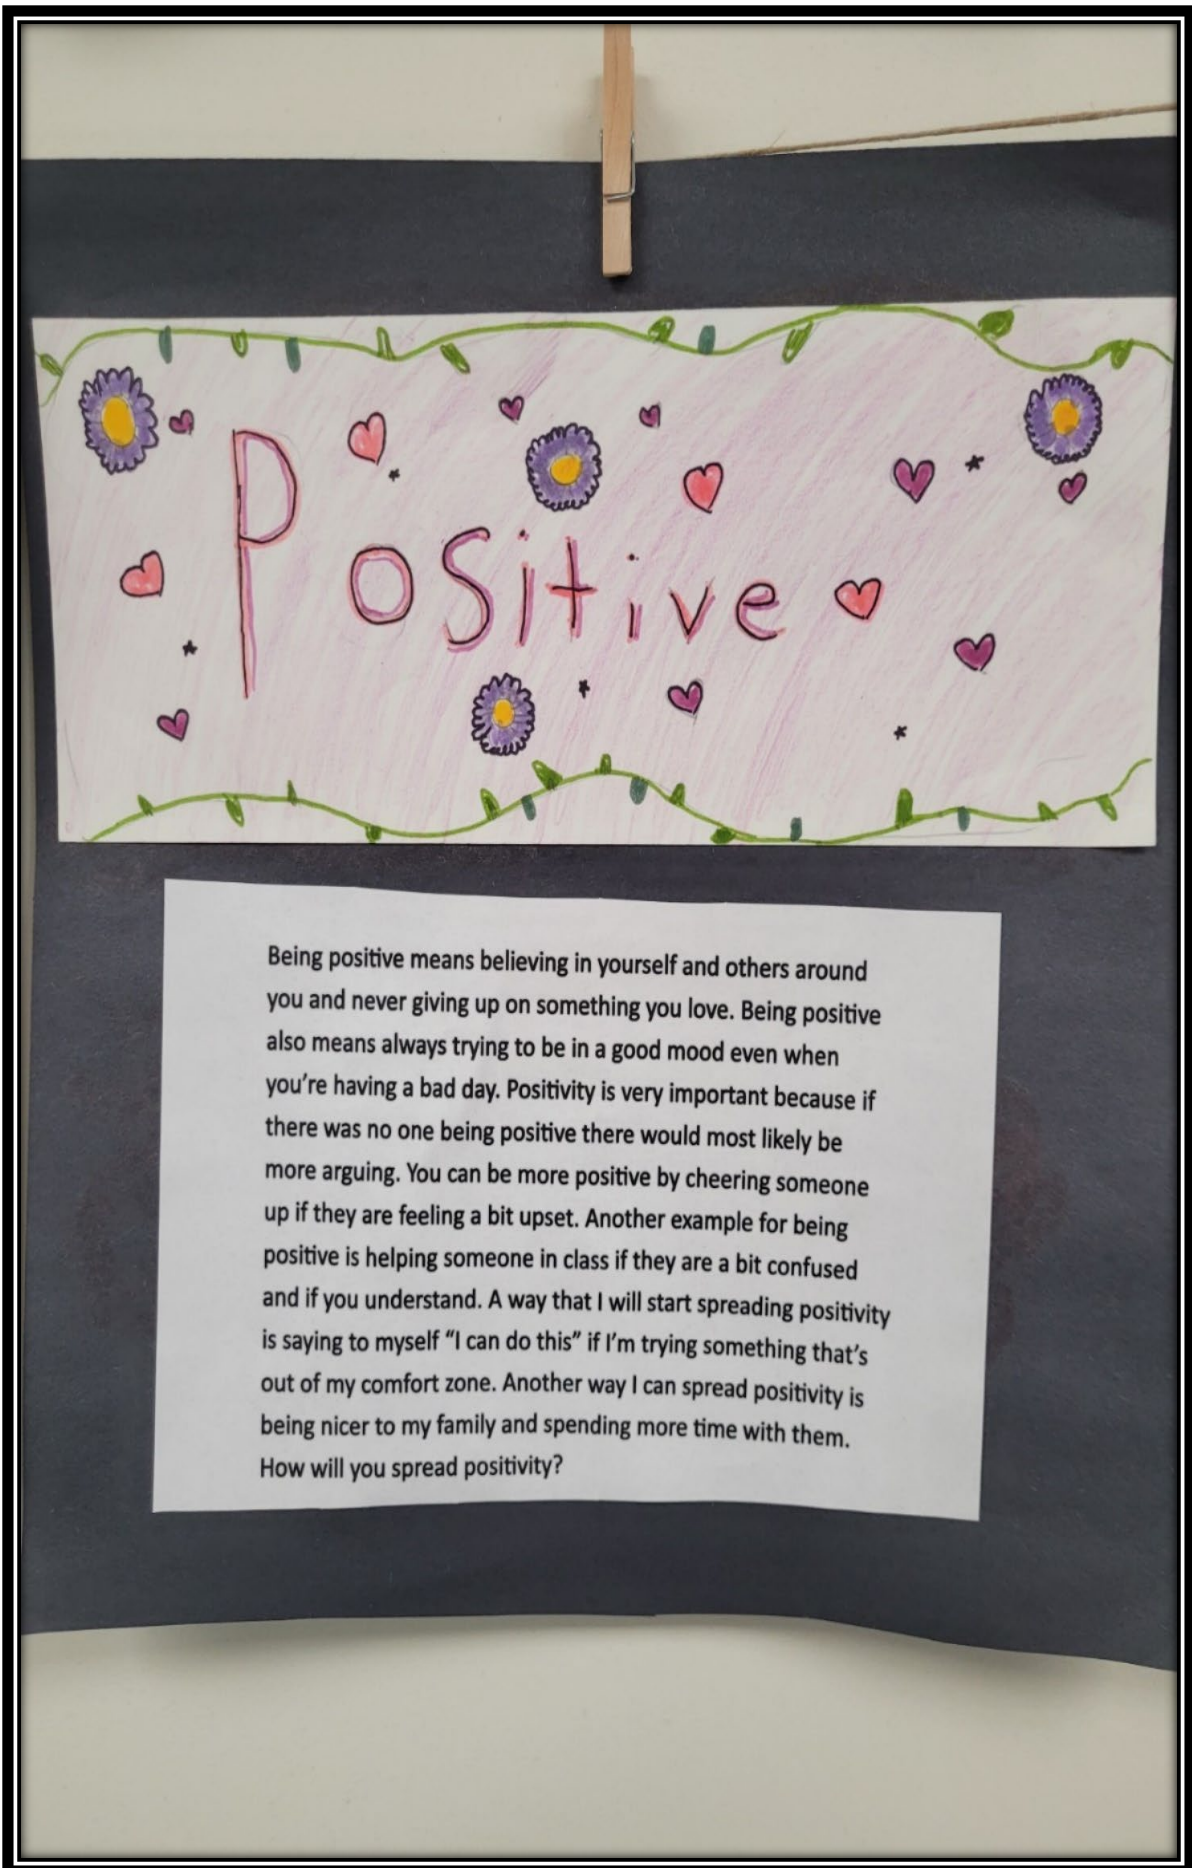 Positive
Being positive means believing in yourself and others around
you and never giving up on something you love. Being positive
also means always trying to be in a good mood even when
you're having a bad day. Positivity is very important because if
there was no one being positive there would most likely be
more arguing. You can be more positive by cheering someone
up if they are feeling a bit upset. Another example for being
positive is helping someone in class if they are a bit confused
and if you understand. A way that I will start spreading positivity
is saying to myself “I can do this” if I'm trying something that's
out of my comfort zone. Another way I can spread positivity is
being nicer to my family and spending more time with them.
How will you spread positivity?